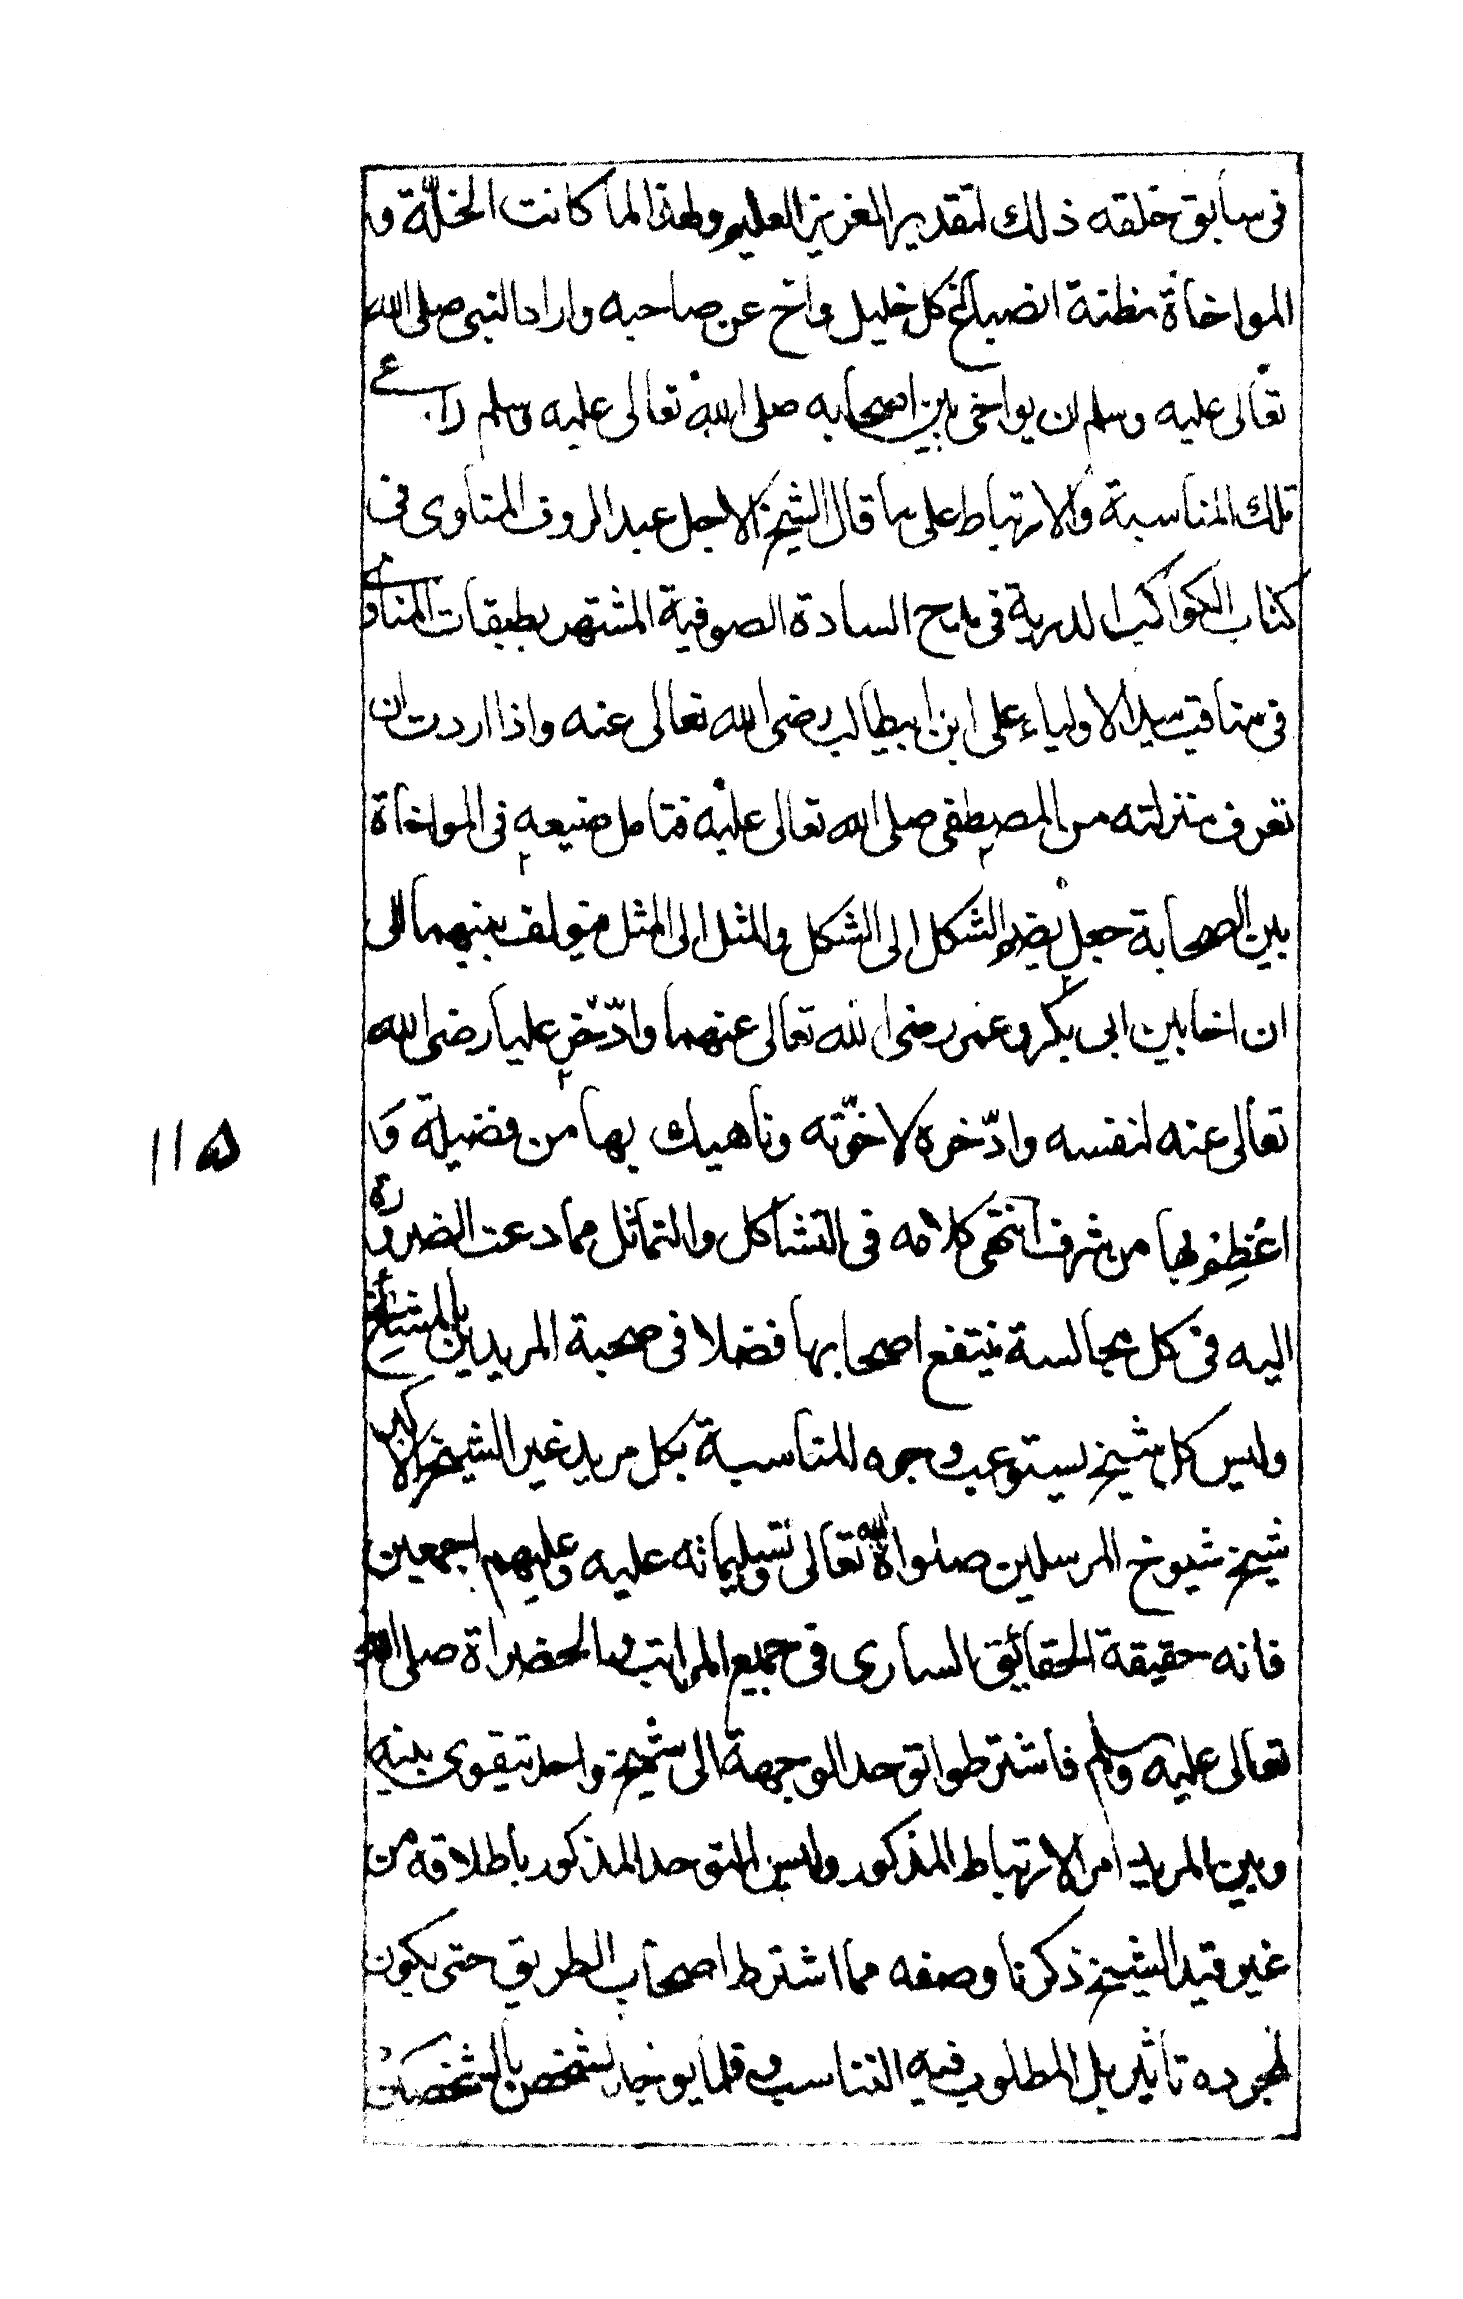 فى سابق خلقه ذلك لتقدير العزيز العليم ولهذا لما كانت الخلّة و
المواخاة مظنة انصباغ كل خليل واخ عن صاحبه واراد النبى صلى الله
تعالى عليه وسلم ان يواخى بين اصحابه صلى الله تعالى عليه وسلم راعى
تلك المناسبة والارتباط على ما قال الشيخ الاجل عبد الروف المناوى فى
كتاب الكواكب الدرية فى مدح السادة الصوفية المشتهر بطبقات المناوى
فى مناقب سيد الاولياء على ابن ابيطالب رضى الله تعالى عنه واذا اردت ان
تعرف منزلته من المصطفى صلى الله تعالى عليه فتامل صنيعه فى المواخاة
بين الصحابة جعل يضم الشكل الى الشكل والمثل الى المثل فيولف بينهما الى
ان اخا بين ابى بكر و عمر رضى الله تعالى عنهما وادّخر عليا رضى الله
تعالى عنه لنفسه وادّخره لاخوّته وناهيك بها من فضيلة وَ
اعْظِم بها من شرف انتهى كلامه فى التشاكل والتماثل مما دعت الضرورة
اليه فى كل مجالسة ينتفع اصحابها فضلا فى صحبة المريدين بالمشائخ
وليس كل شيخ يستوعب وجوه المناسبة بكل مريد غير الشيخ الاكبر
شيخ شيوخ المرسلين صلواة الله تعالى وتسليماته عليه وعليهم اجمعين
فانه حقيقة الحقائق السارى فى جميع المراتب والحضراة صلى الله
تعالى عليه وسلم فاشترطوا توحد الوجهة الى شيخ واحد يتقوى بينه
وبين المريد امر الارتباط المذكور وليس التوحد المذكور باطلاقه من
غير قيد الشيخ ذكرنا وصفه مما اشترط اصحاب الطريق حتى يكون
لمجرده تاثير بل المطلوب فيه التناسب و قلما يوجد لشخص بالشخصين
١١٥